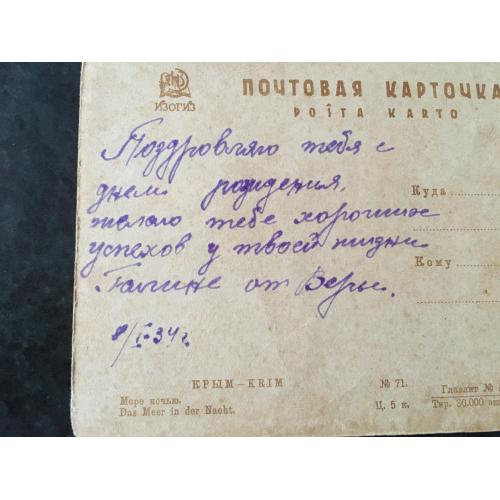 ИЗОГИЗ
ПОЧТОВАЯ КАРТОЧКА
POŜTA KARTO
Поздровляю тебя с
днем рождения,
желаю тебе хороших
успехов у твоей жизни
Галине от Веры.
8/I-34г.
Куда
Кому
КРЫМ—KRIM
№ 71.
Главлит №
Море ночью.
Das Meer in der Nacht.
Ц. 5 к.
Тир. 30.000 экз